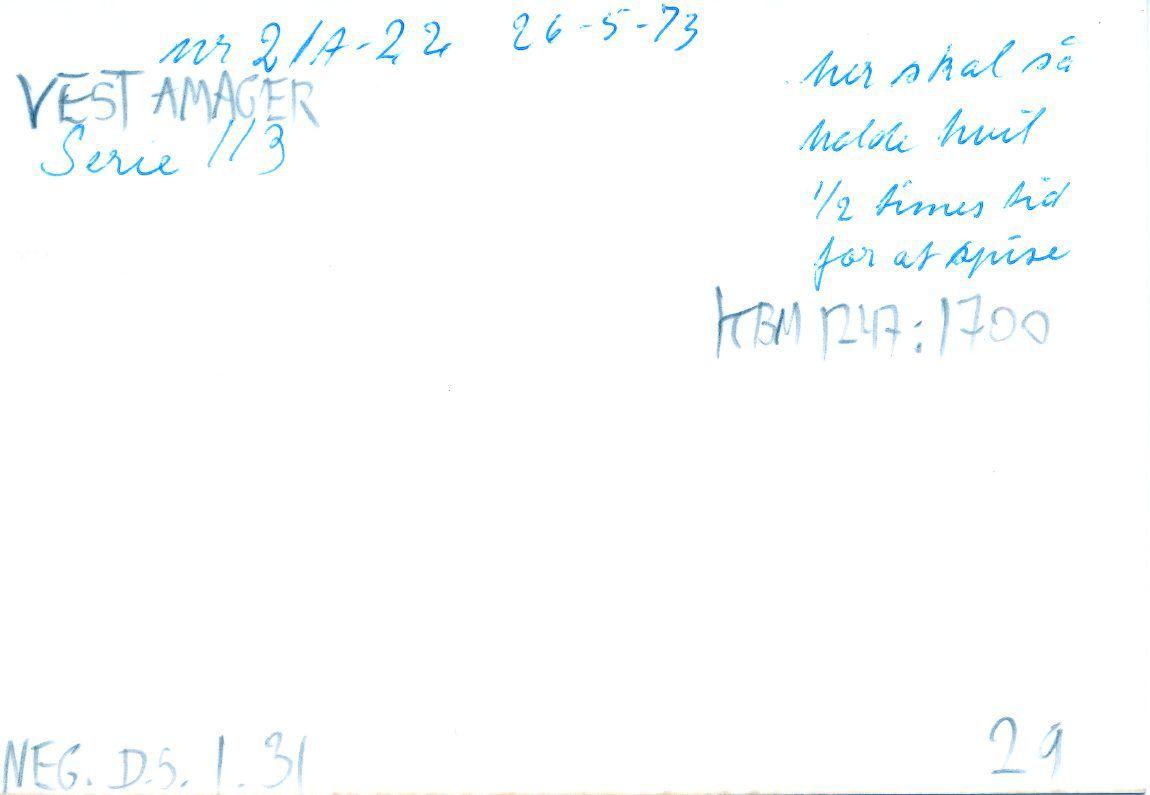 nr 21A-22 26-5-73
VEST AMAGER
Serie 113
her skal så
holde hvil
1/2 times tid
for at spise
KBM 1247:1700
NEG. D.S. 1.31
29